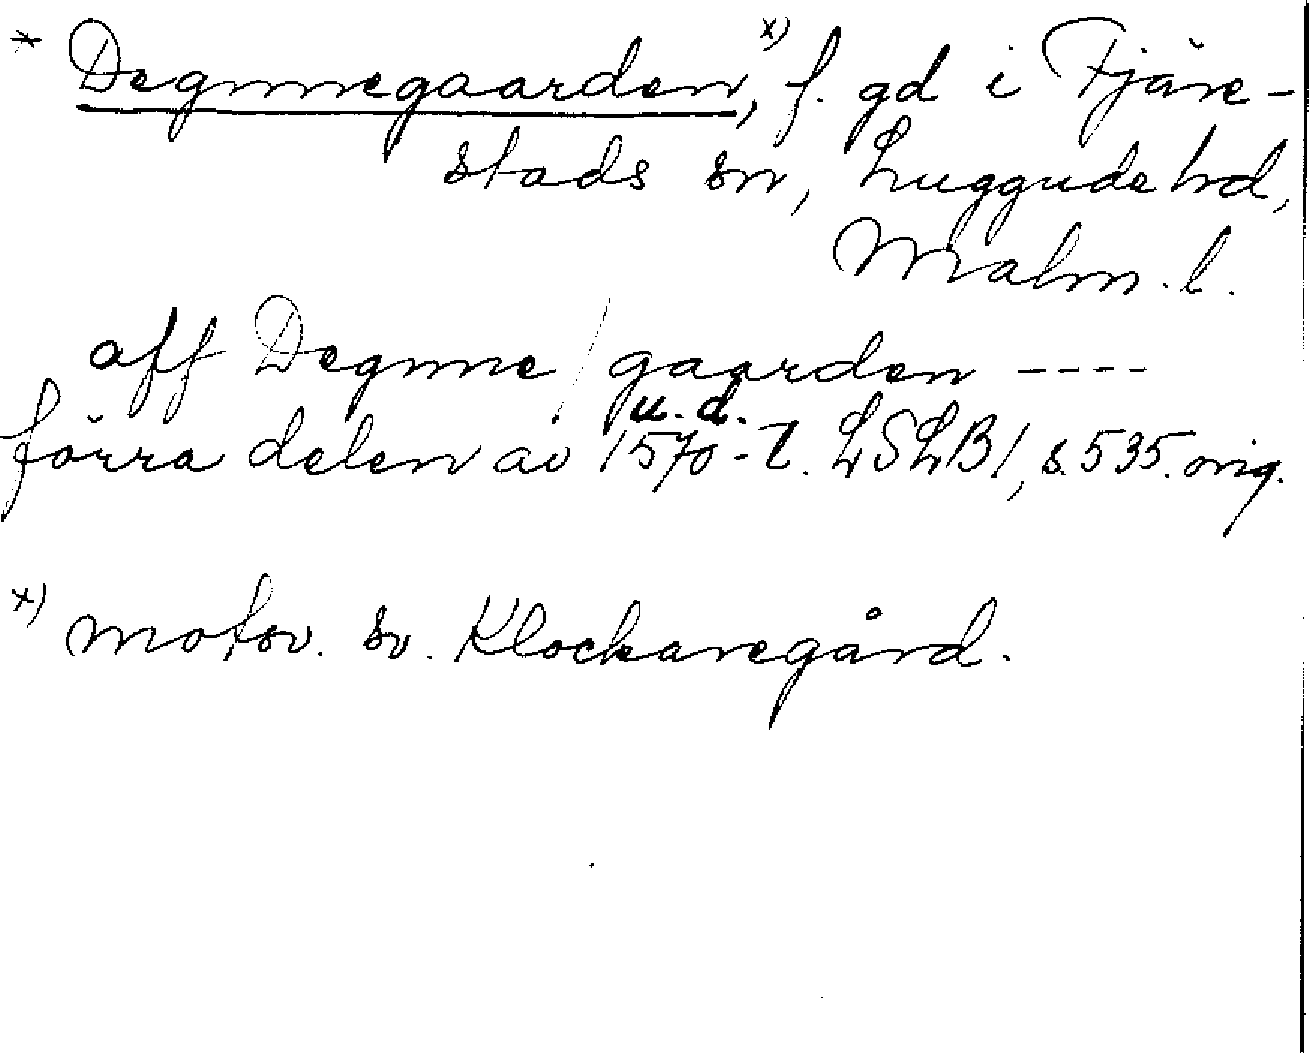 * Degnnegaarden,x) f. gd i Fjäre-
stads sn, Luggude hd,
Malm. l.
aff Degnne / gaarden ----
u. d.
förra delen av 1570-t. LSLB1, s. 535. orig.
x) motsv. sv. Klockaregård.